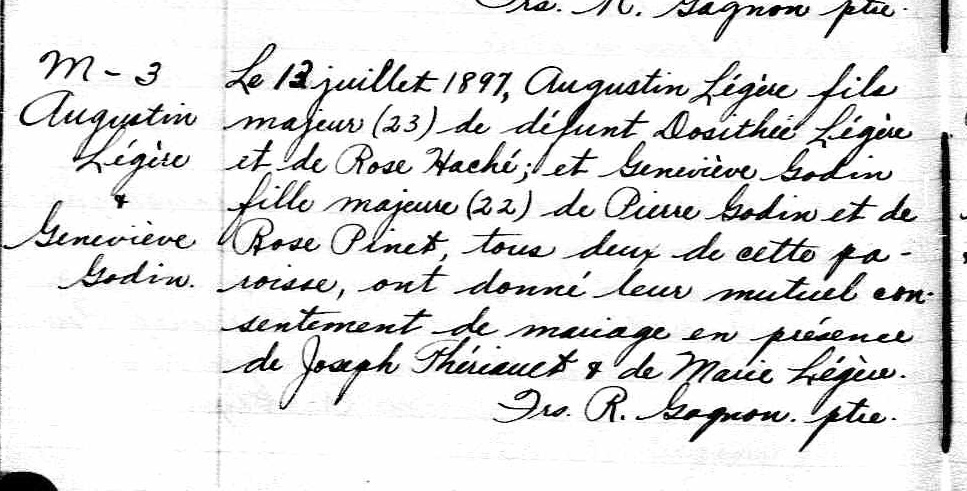 Frs. R. Gagnon ptre.
M - 3
Augustin
Légère
&
Geneviève
Godin.
Le 13 juillet 1897, Augustin Légère fils
majeur (23) de défunt Dosithée Légère
et de Rose Haché; et Geneviève Godin
fille majeure (22) de Pierre Godin et de
Rose Pinet, tous deux de cette pa-
roisse, ont donné leur mutuel con-
sentement de mariage en présence
de Joseph Thériault & de Marie Légère.
Frs. R. Gagnon. ptre.